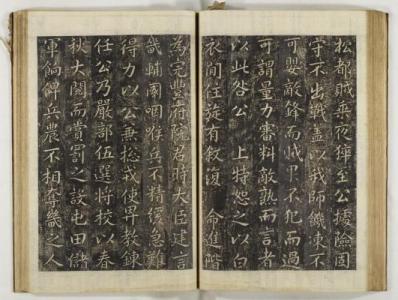 松都賊乘夜猝至公據險固
守不出戰盖以我師饑凍不
可嬰敵鋒而賊卒不犯而過
可謂量力審料敵熟而言者
以此咎公 上特恕之以白
衣閒住旋有敘復 命進階
為完豊府院君時大臣建言
畿輔國咽喉兵不精緩急難
得力以公兼摠戎使俾教鍊
任公乃嚴部伍選將校以春
秋大閱而賞罰之設屯田儲
軍餉俾兵農不相奪畿之人